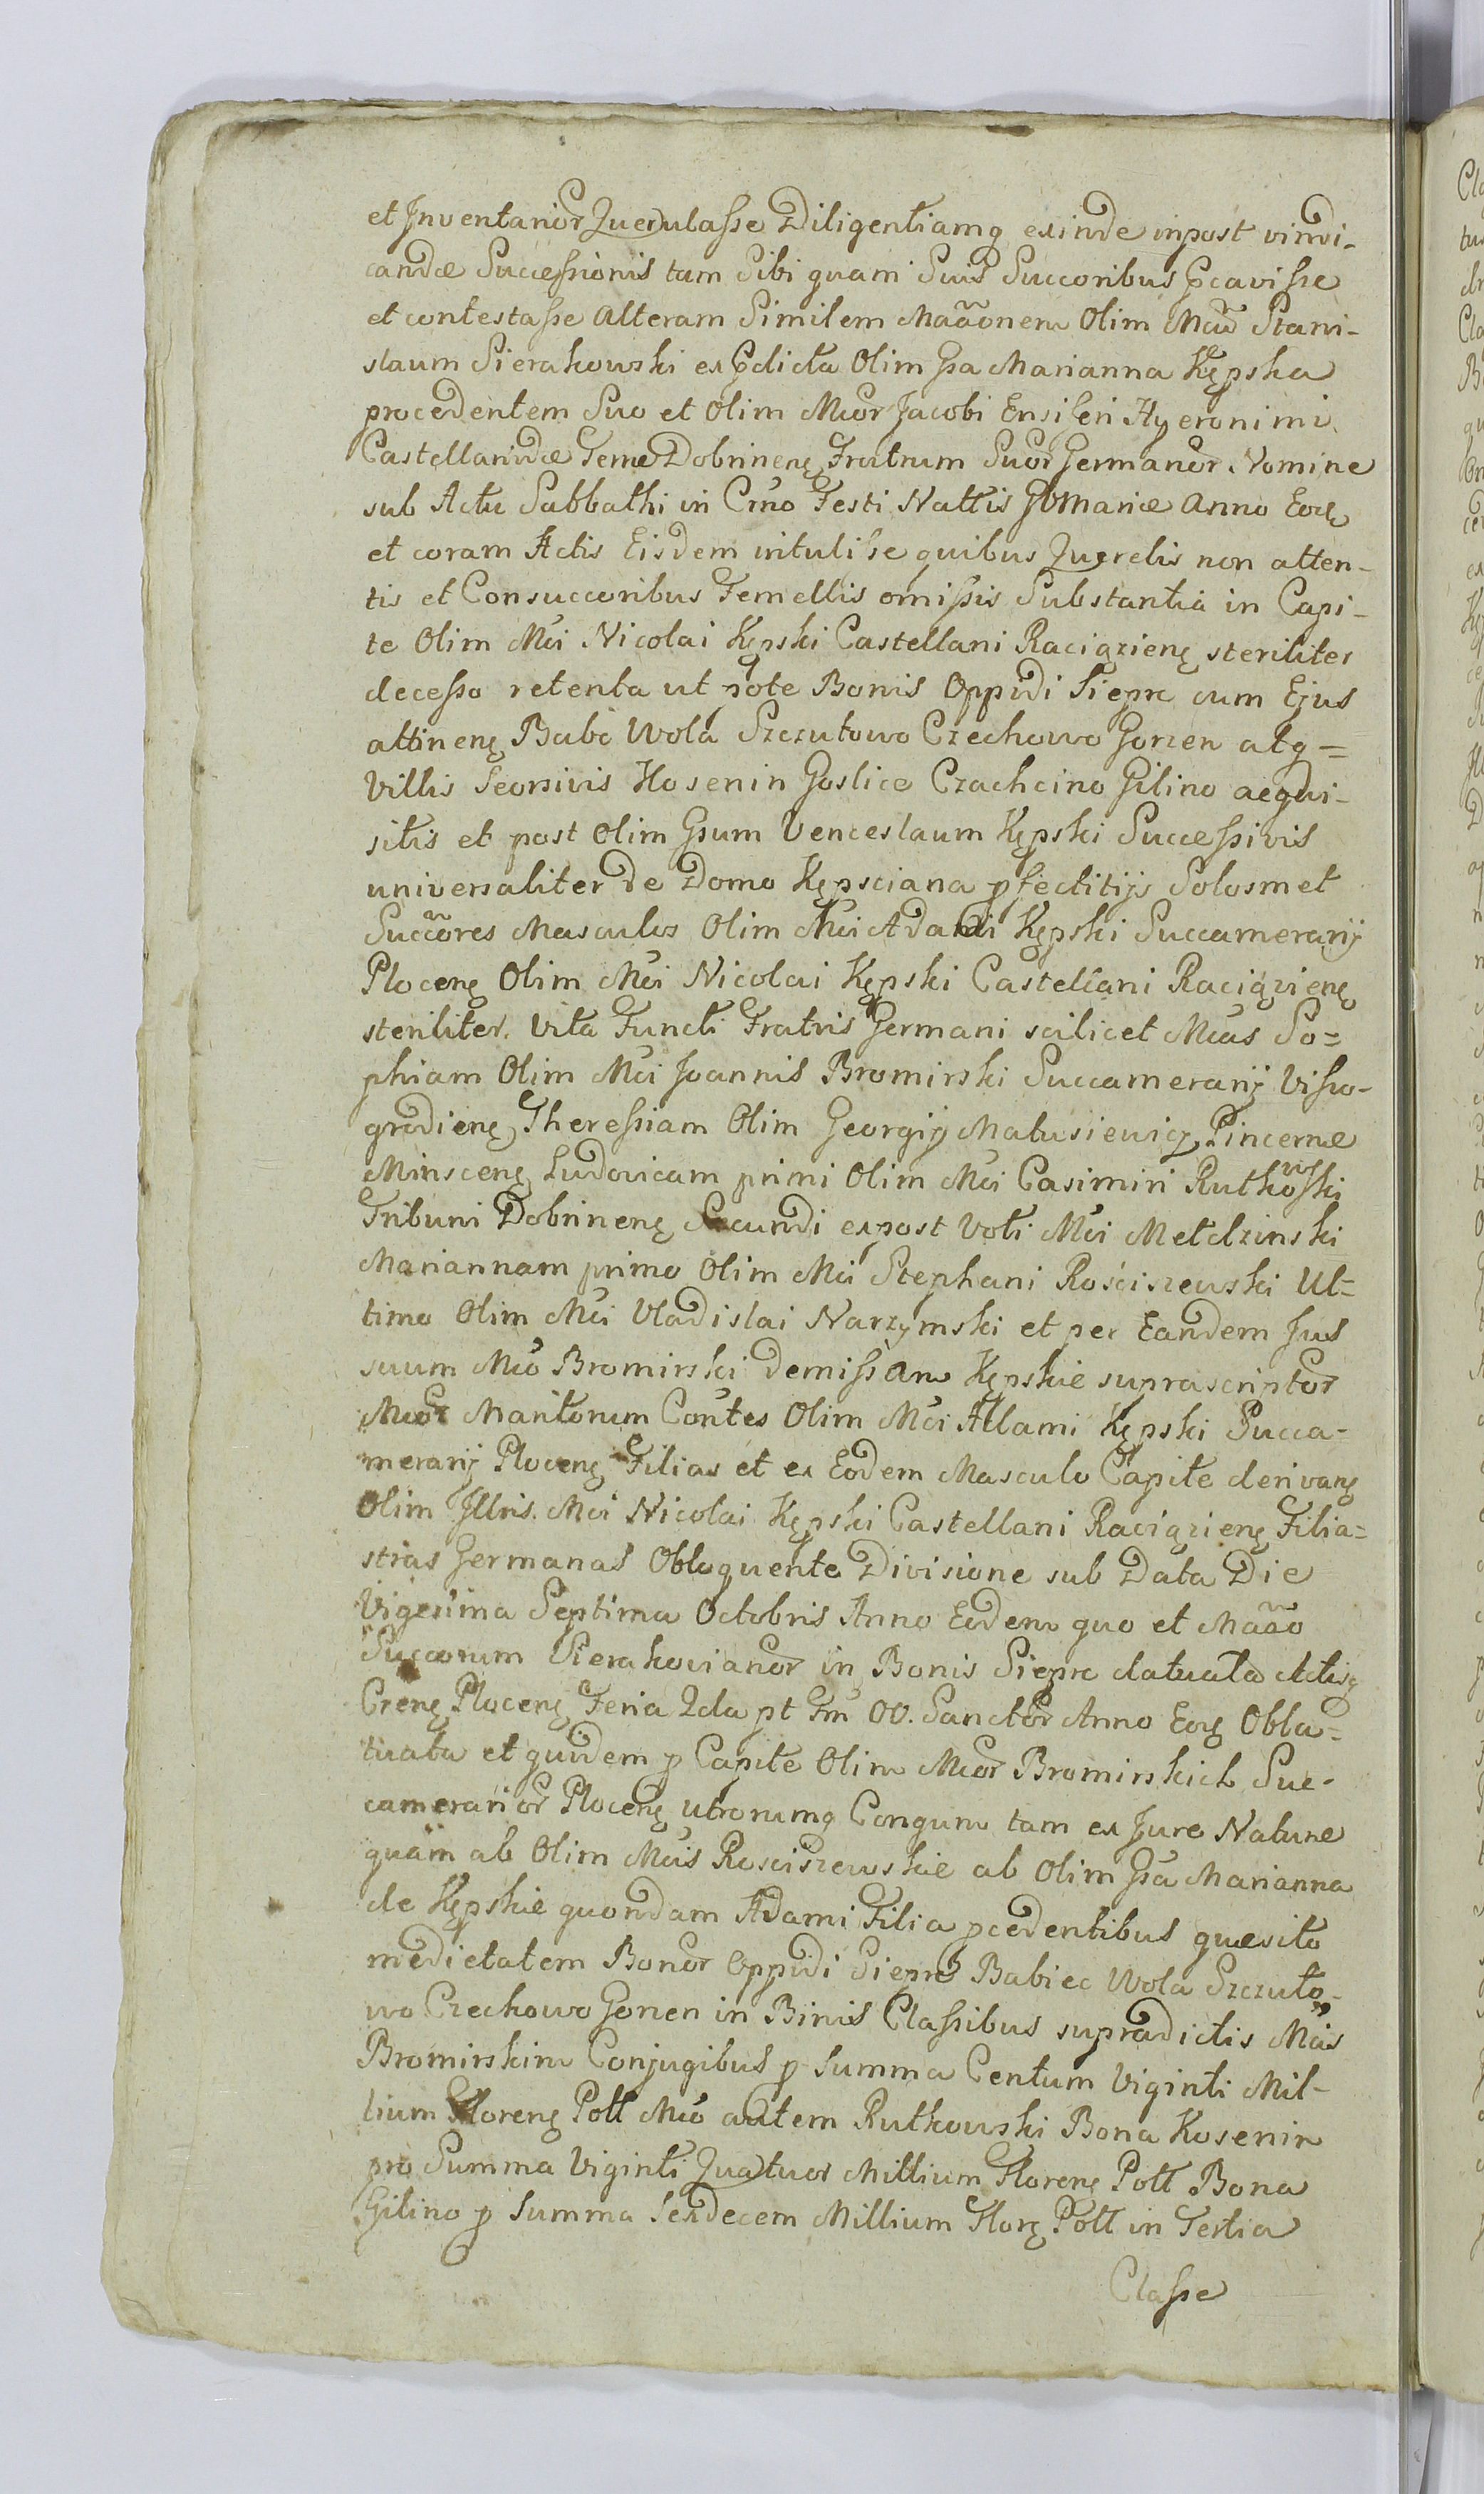 et Inventarior Querulasse Diligentiamq exinde inpost vindi-
candæ Successionis tam Sibi quam Suis Succoribus pcavisse
et contestasse Alteram Similem Maãonem Olim Mcũ Stani-
slaum Sierakowski ex pdicta Olim Gsa Marianna Kępska
procedentem Suo et Olim Mcor Jacobi Ensiferi Hyeronimi
Castellanidæ Terræ Dobrineng Fratrum Suor Germanor Nomine
sub Actu Sabbathi in Crno Festi Nattis Mariæ Anno Eod
et coram Actis Eisdem intulisse quibus Querelis non atten-
tis et Consuccoribus Femellis omissis Substantia in Capi-
te Olim Mci Nicolai Kępski Castellani Raciązieng steriliter
decesso retenta ut pote Bonis Oppidi Siepre cum Ejus
attineng Babi Wola Szczutowo Czechowo Gorzen atq=
Villis Seorsivis Kosenin Goslice Czachcino Gilino aeqvi-
sitis et post Olim Gsum Venceslaum Kępski Successivis
universaliter de Domo Kępsciana pfectitijs Solosmet
Succores Masculos Olim Mci Adami Kępski Succamerarij
Ploceng Olim Mci Nicolai Kępski Castellani Raciązieng
steriliter Vita Functi Fratris Germani scilicet Mcas So=
phiam Olim Mci Joannis Bromirski Succamerarij Visso-
gradieng Theressiam Olim Georgij Matusiewicz Pincernæ
Minsceng Ludovicam primi Olim Mci Casimiri Ruthowski
Tribuni Dobrineng Secundi expost Voti Mci Metdzinski
Mariannam primo Olim Mci Stephani Rościszewski Ul=
timo Olim Mci Vladislai Narzymski et per Eandem Jus
suum Mco Bromirski demissam Kępskie suprascriptor
Mcor Maritorum Contes Olim Mci Adami Kępski Succa-
merarij Ploceng Filias et ex Eodem Masculo Capite derivang
Olim Illris. Mci Nicolai Kępski Castellani Raciązieng Filia=
stras Germanas Obloquente Divisione sub Data Die
Vigesima Septima Octobris Anno Eodem quo et Maão
Succorum Sierakovianor in Bonis Siepre datuata Actisq
Creng Ploceng Feria 2da pt Fm OO. Sanctor Anno Eog Obla=
tivata et quidem p Capite Olim Mcor Bromirskich Suc-
camerarior Ploceng utrorumq Congum tam ex Jure Naturæ
quam ab Olim Mcis Rosciszewskie ab Olim Gsa Marianna
de Kępskie quondam Adami Filia pcedentibus quæsito
medietatem Bonor Oppidi Siepre Babiec Wola Szczuto-
wo Czechowo Gorzen in Binis Classibus supradictis Mcis
Bromirskim Conjugibus p Summa Centum Viginti Mil-
lium Floreng Poll Mco autem Rutkowski Bona Kosenin
pro Summa Viginti Quatuor Millium Floreng Poll Bona
Gilino p Summa Sexdecem Millium Florg Poll in Tertia
Classe